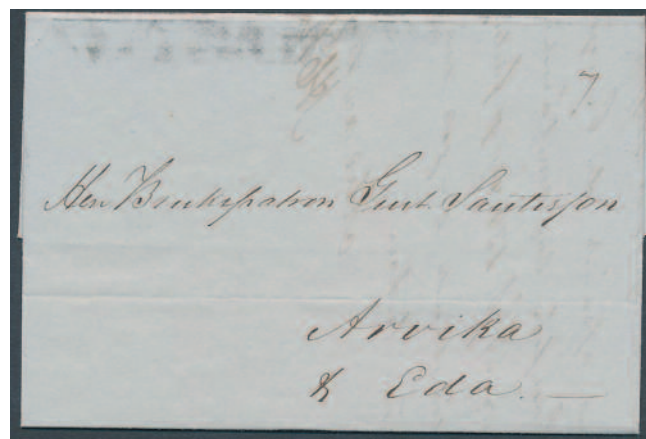 7.
Herr Brukspatron Gust. Santesson
Arvika
& Eda. —